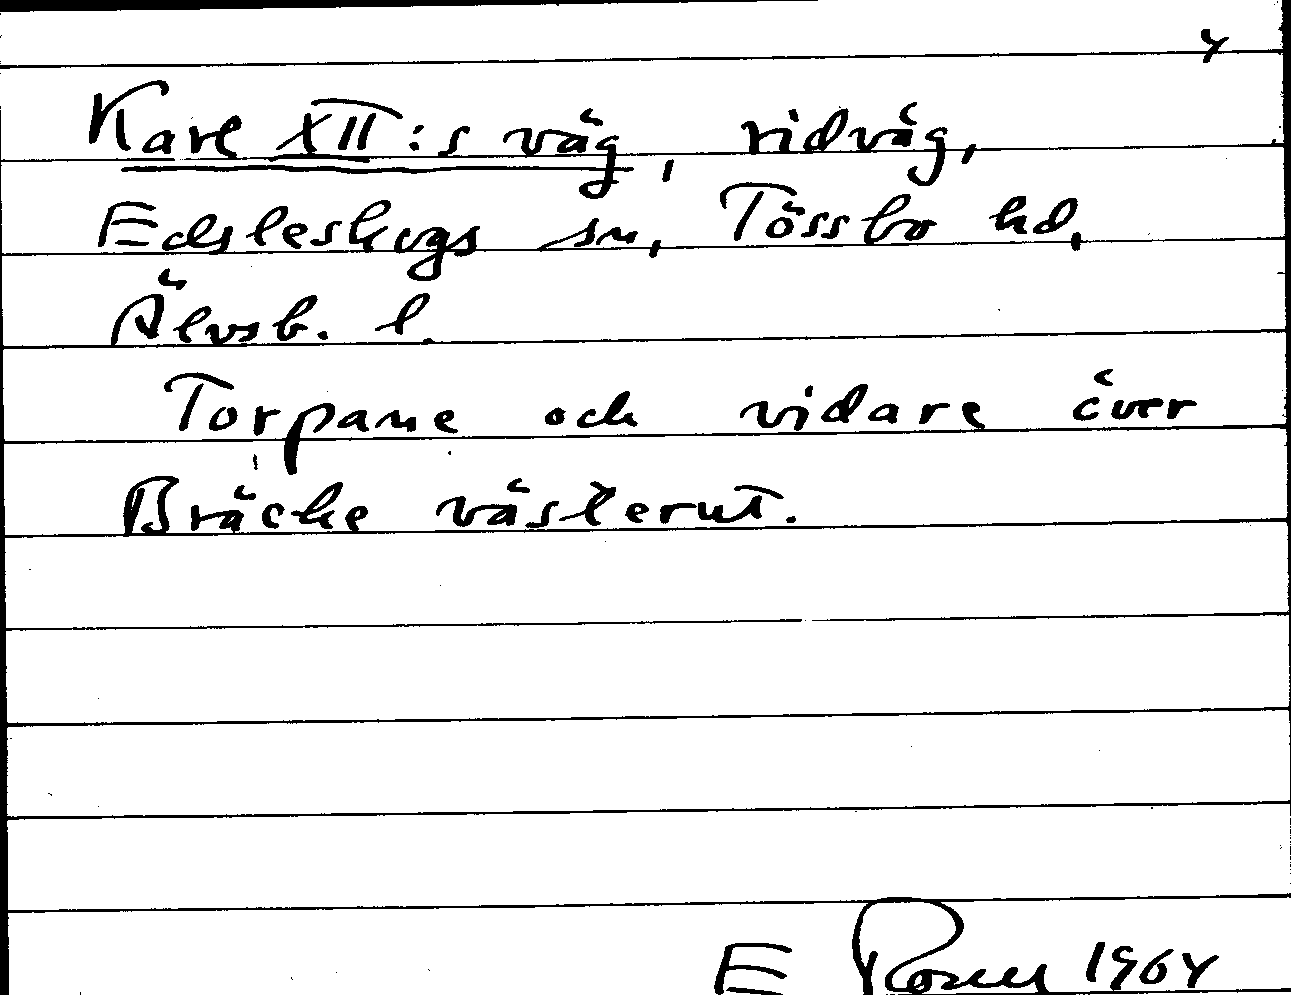 4
Karl XII:s väg, ridväg,
Edsleskogs sn, Tössbo hd,
Älvsb. l.
Torpane och vidare över
Bräcke västerut.
E 1964